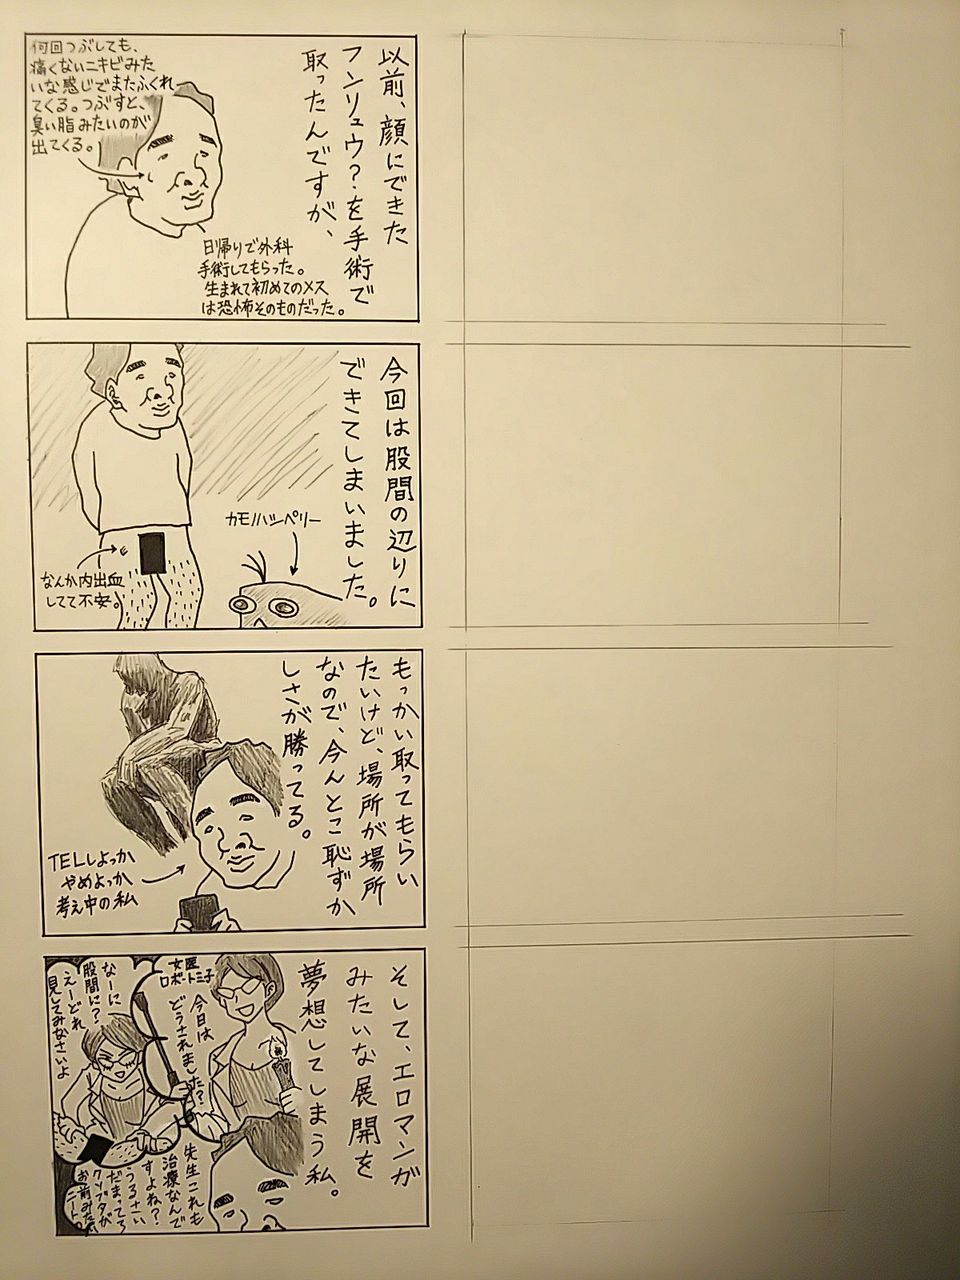 以前、顔にできた
フンリュウ?を手術で
取ったんですが、
何回つぶしても、
痛くないニキビみた
いな感じでまたふくれ
てくる。つぶすと、
臭い脂みたいのが
出てくる。
日帰りで外科
手術してもらった。
生まれて初めてのメス
は恐怖そのものだった。
今回は股間の辺りに
できてしまいました。
カモノハシペリー
なんか内出血
してて不安。
もっかい取ってもらい
たいけど、場所が場所
なので、今んとこ恥ずか
しさが勝ってる。
TELしよっか
やめよっか
考え中の私
そして、エロマンガ
みたいな展開を
夢想してしまう私。
女医
ロボートミ子
今日は
どうされました?
なーに
股間に?
えーどれ
見してみなさいよ
先生これも
治療なんで
すよね?
うるさい
だまってろ
クソブタが
お前みたいな
ニートの